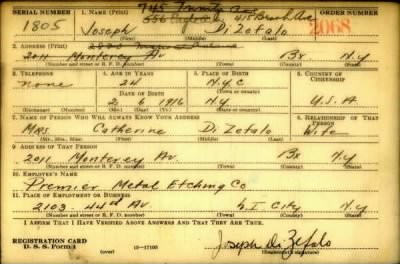 SERIAL NUMBER 1. NAME (Print) ORDER NUMBER
745 Trinity Av
556 415 Brook Ave
1805 Joseph Di Zefalo 2068
(First) (Middle) (Last)
2. ADDRESS (Print)
2011 Monterey Av Bx N.Y
(Number and street or R. F. D. number) (Town) (County) (State)
3. TELEPHONE 4. AGE IN YEARS 5. PLACE OF BIRTH 6. COUNTRY OF CITIZENSHIP
none 24 N.Y.C
DATE OF BIRTH
2 6 1916 N.Y. U.S.A
(Exchange) (Number) (Mo.) (Day) (Yr.) (State or country)
7. NAME OF PERSON WHO WILL ALWAYS KNOW YOUR ADDRESS 8. RELATIONSHIP OF THAT PERSON
Mrs. Catherine Di Zefalo Wife
(Mr., Mrs., Miss) (First) (Middle) (Last)
9. ADDRESS OF THAT PERSON
2011 Monterey Av Bx N.Y
(Number and street or R. F. D. number) (Town) (County) (State)
10. EMPLOYER'S NAME
Premier Metal Etching Co
11. PLACE OF EMPLOYMENT OR BUSINESS
2103 - 44th Av L.I City N.Y
(Number and street or R. F. D. number) (Town) (County) (State)
I AFFIRM THAT I HAVE VERIFIED ABOVE ANSWERS AND THAT THEY ARE TRUE.
REGISTRATION CARD
D. S. S. Form 1 (over) 16-17105 Joseph Di Zefalo